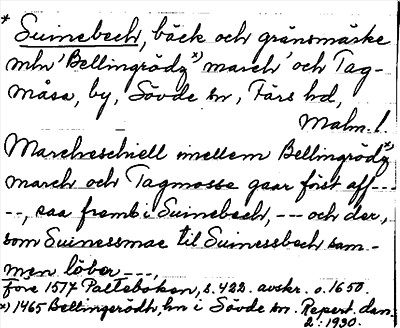 * Suinebech, bäck och gränsmärke
mln 'Bellingrödz*) march' och Tag-
måsa, by, Sövde sn, Färs hd,
Malm. l.
Marcheschiell imellem Bellingrödz*)
march och Tagmosse gaar först aff ---
--, saa framb i Suinebech, --- och der,
som Suinessmae til Suinessbech sam-
men löber ---,
före 1517 Palteboken, s. 422. avskr. o. 1650.
*) 1465 Bellingerödh, hn i Sövde sn. Repert. dan.
2: 1930.